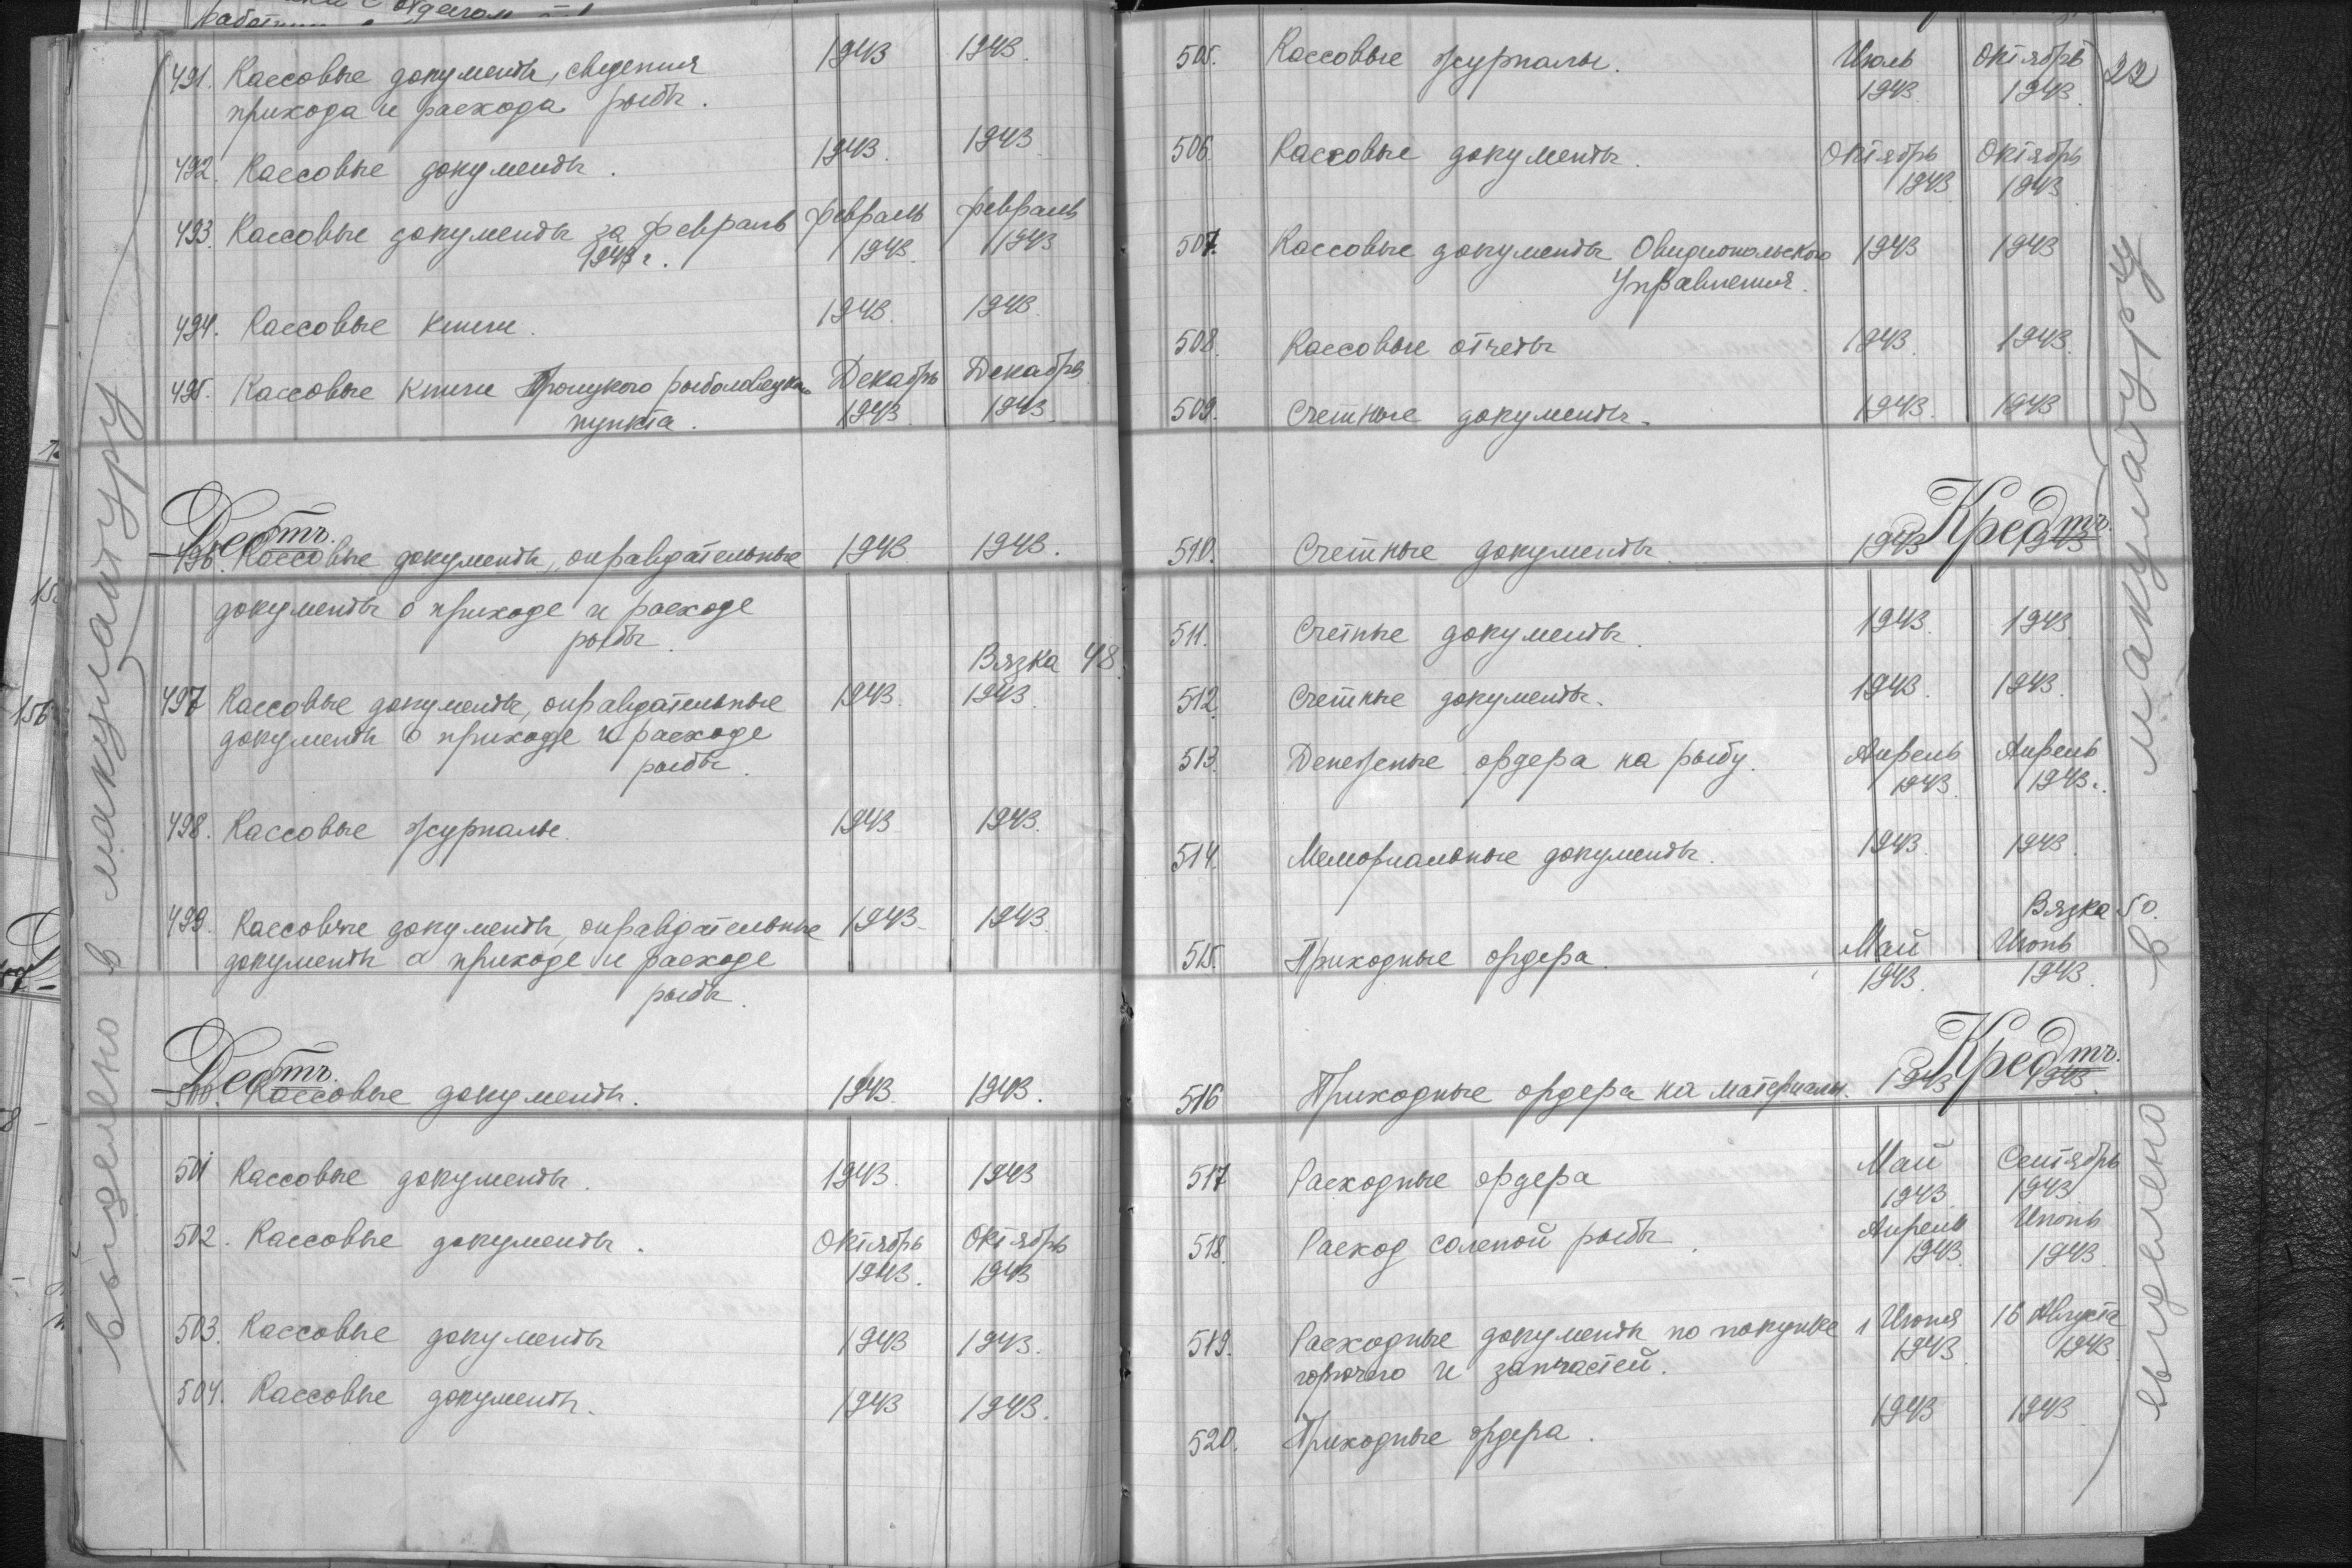 491. Кассовые документы, сведения 1943 1943.
прихода и расхода рыбы.
492. Кассовые документы. 1943. 1943
493. Кассовые документы за февраль февраль февраль
1943 г. 1943. 1943
494. Кассовые книги. 1943. 1943.
495. Кассовые книги рыболовецкого Декабрь Декабрь
пункта. 1943. 1943.
Дебтъ.
496. Кассовые документы, оправдательные 1943 1943.
документы о приходе и расходе
рыбы.
Вязка 48.
497 Кассовые документы, оправдательные 1943. 1943.
документы о приходе и расходе
рыбы.
498. Кассовые журналы. 1943 1943.
499. Кассовые документы, оправдательные 1943. 1943.
документы о приходе и расходе
рыбы.
Дебтъ.
500. Кассовые документы. 1943. 1943.
501 Кассовые документы. 1943. 1943
502. Кассовые документы. Октябрь Октябрь
1943. 1943
503. Кассовые документы 1943 1943.
504. Кассовые документы. 1943 1943.
выделено в макулатуру
22
505. Кассовые журналы. Июль Октябрь
1943. 1943.
506. Кассовые документы. Октябрь Октябрь
1943 1943.
507. Кассовые документы Овидиопольского 1943 1943
Управления.
508. Кассовые отчеты 1943. 1943.
509. Счетные документы. 1943. 1943
Кредтъ.
510. Счетные документы. 1943 1943
511. Счетные документы. 1943. 1943.
512. Счетные документы. 1943. 1943.
513. Денежные ордера на рыбу. Апрель Апрель
1943. 1943.
514. Мемориальные документы. 1943. 1943.
Вязка 50.
515. Приходные ордера. Май Июнь
1943. 1943.
Кредтъ.
516 Приходные ордера на материалы. 1943 1943.
517 Расходные ордера Май Сентябрь
1943. 1943
518. Расход соленой рыбы. Апрель Июнь
1943. 1943.
519. Расходные документы по покупке 1 Июня 16 Августа
горючего и запчастей. 1943. 1943.
520. Приходные ордера. 1943 1943.
выделено в макулатуру